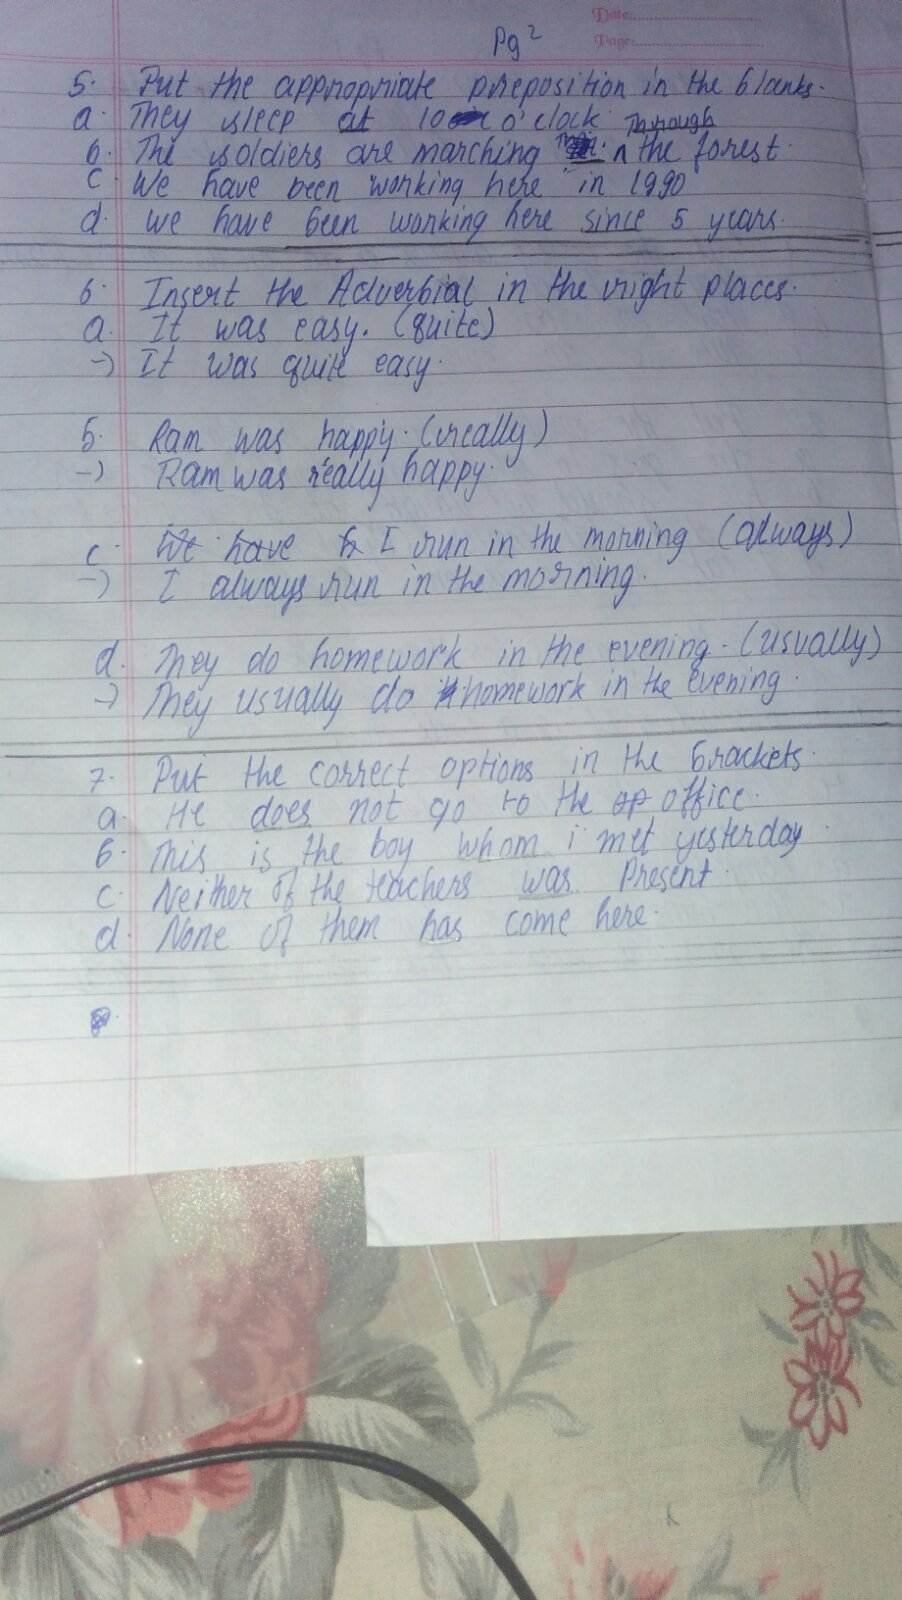 Date:
Page:
Pg 2
5. Put the appropriate preposition in the blanks.
a. They sleep at 10 o'clock.
Through
b. The soldiers are marching the forest.
c. We have been working here in 1990
d. we have been working here since 5 years.
6. Insert the Adverbial in the right places.
a. It was easy. (quite)
→ It was quite easy.
b. Ram was happy. (really)
→ Ram was really happy.
c. We have I run in the morning (always)
→ I always run in the morning.
d. They do homework in the evening. (usually)
→ They usually do homework in the evening.
7. Put the correct options in the brackets.
a. He does not go to the office.
b. This is the boy whom i met yesterday.
c. Neither of the teachers was Present.
d. None of them has come here.